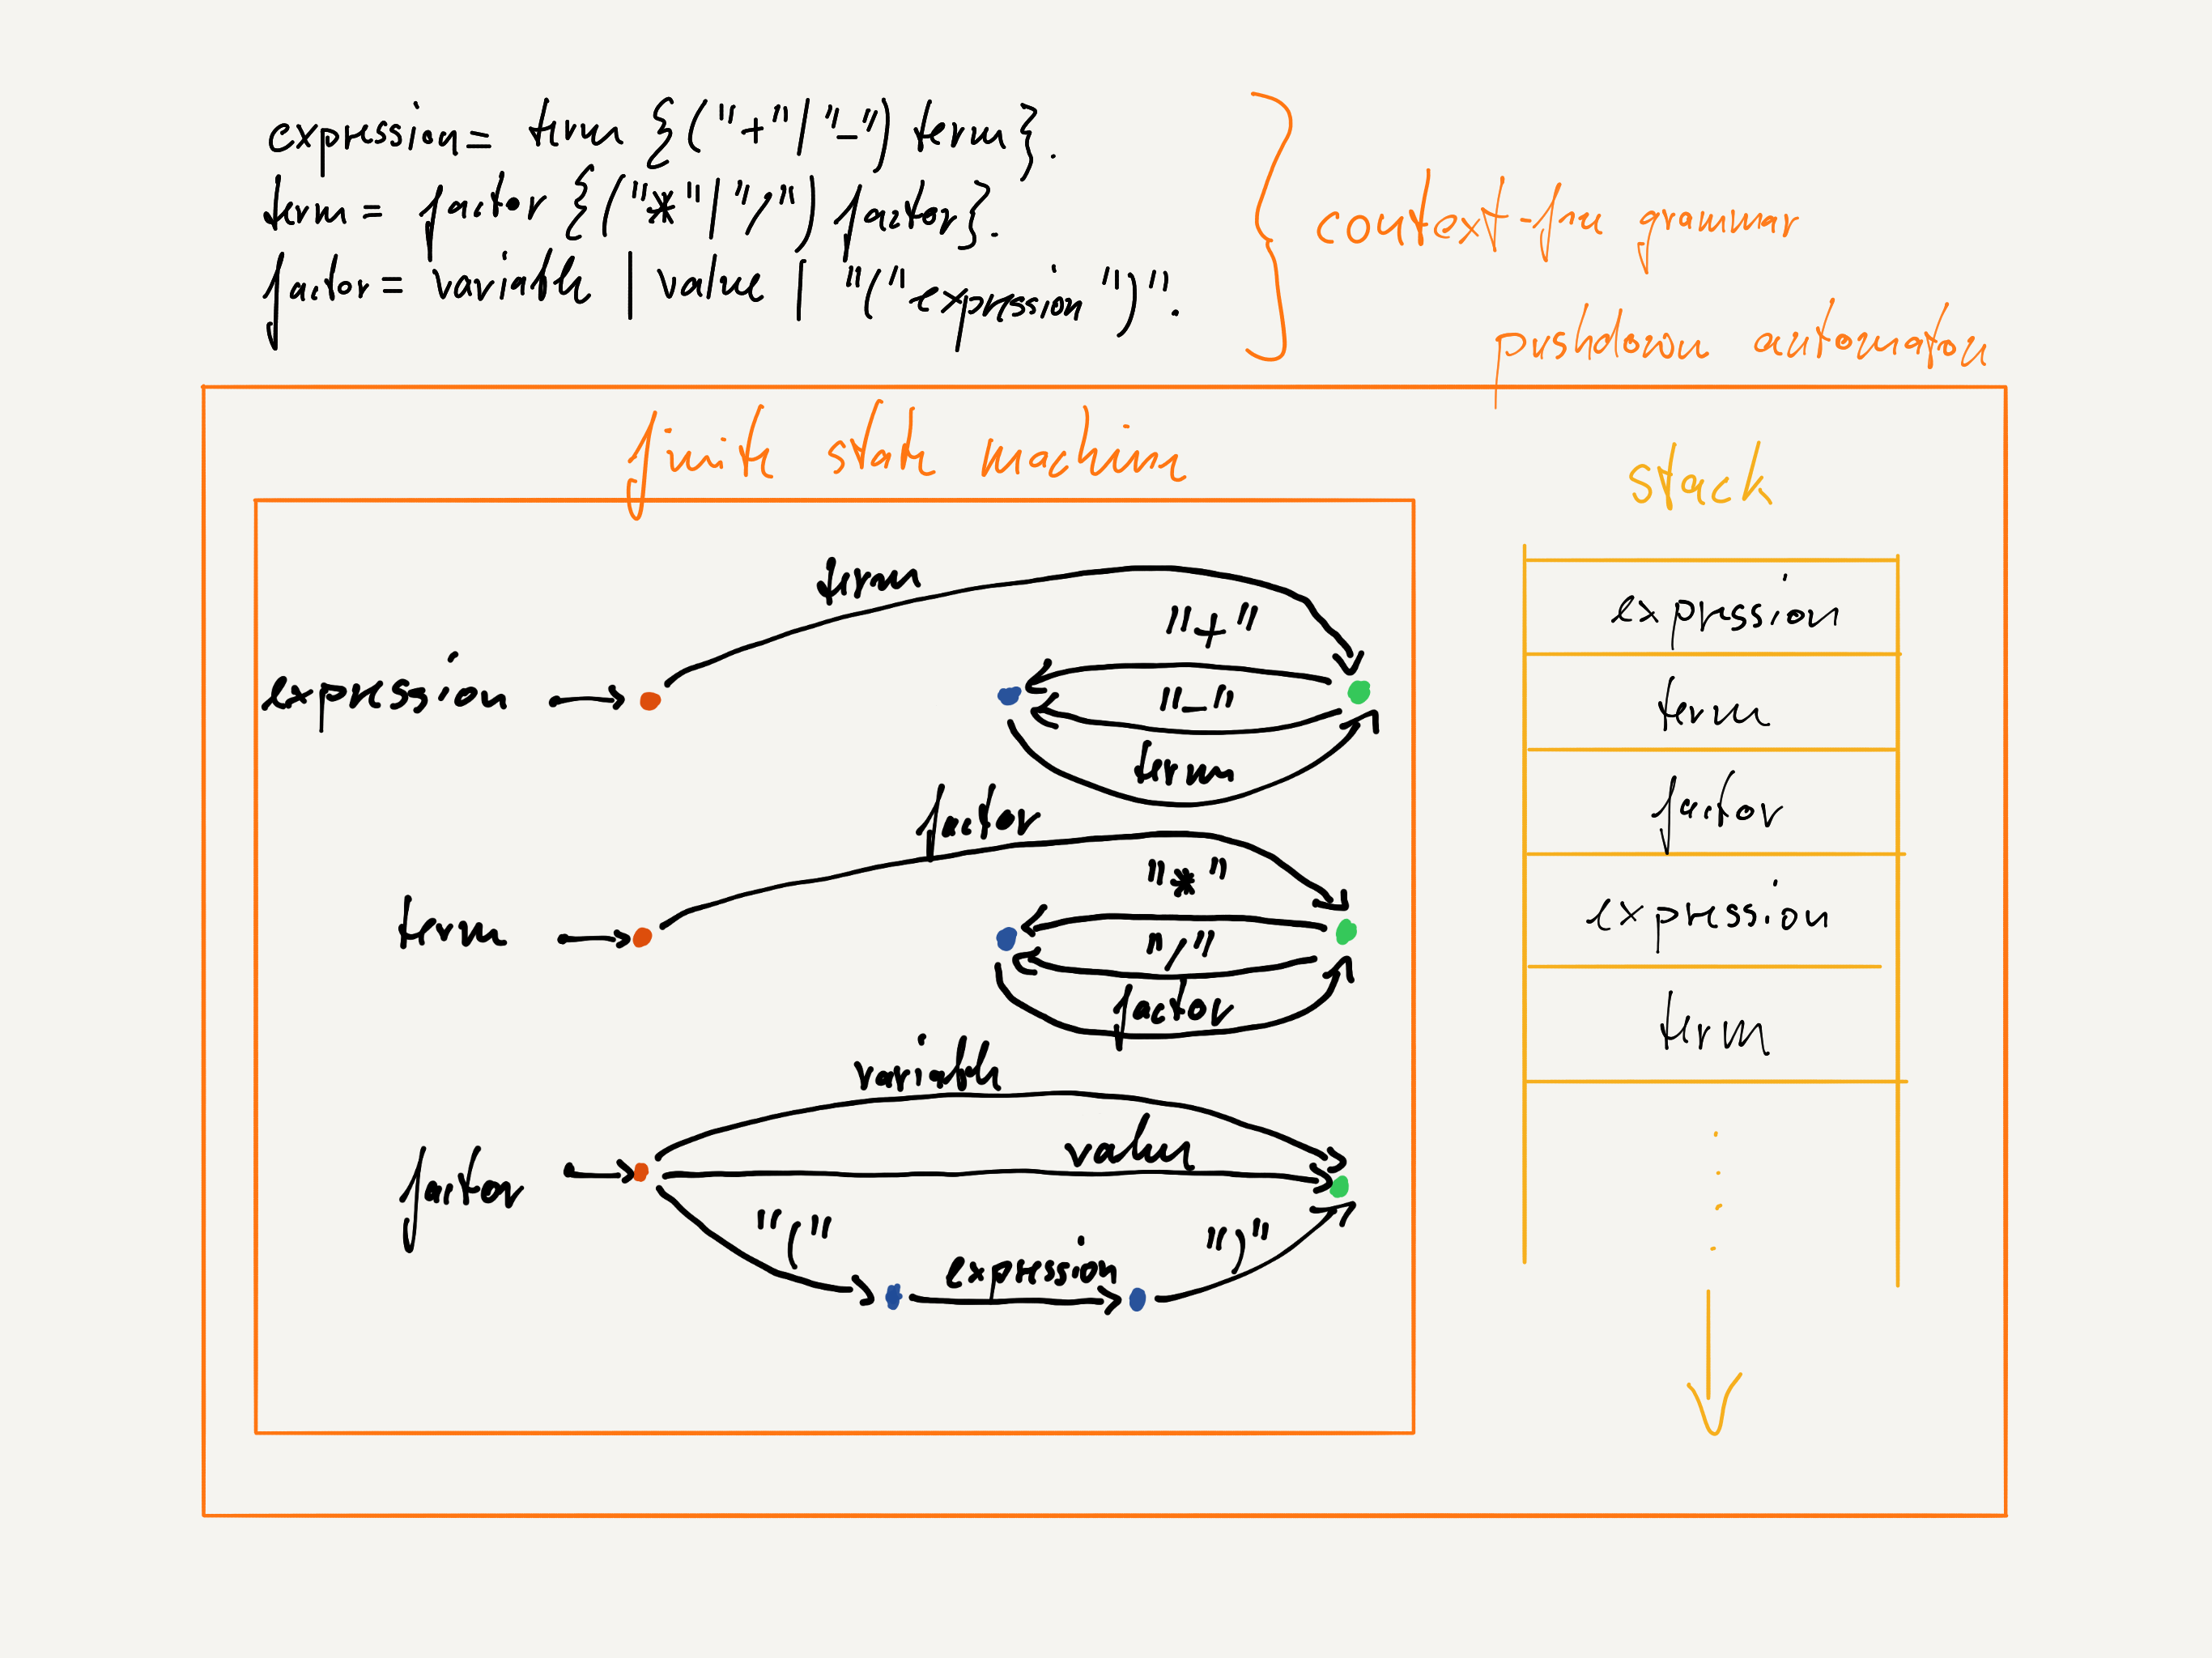 expression = term {("+" | "-") term}.
term = factor {("*" | "/") factor}.
factor = variable | value | "(" expression ")".
context-free grammar
pushdown automaton
finite state machine
stack
term
"+"
expression
"-"
term
factor
"*"
term
"/"
factor
variable
value
factor
"("
expression
")"
expression
term
factor
expression
term